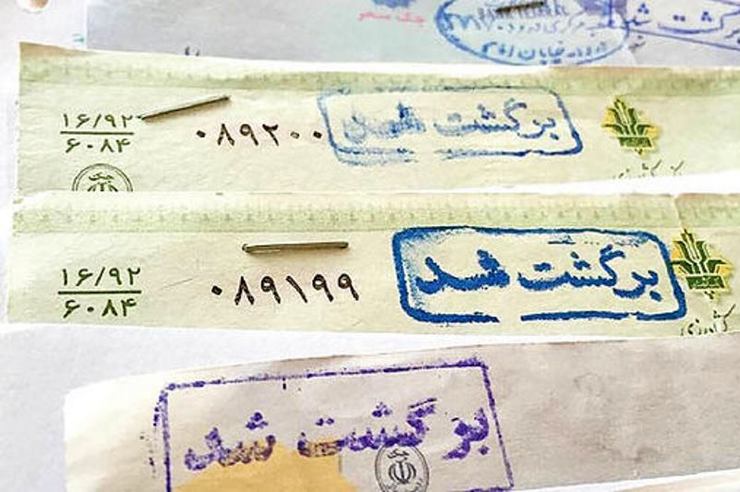 برگشت شد
۱۶/۹۲
۶۰۸۴
۰۸۹۲۰۰
برگشت شد
چک
۱۶/۹۲
۶۰۸۴
۰۸۹۱۹۹
برگشت شد
کشاورزی
برگشت شد